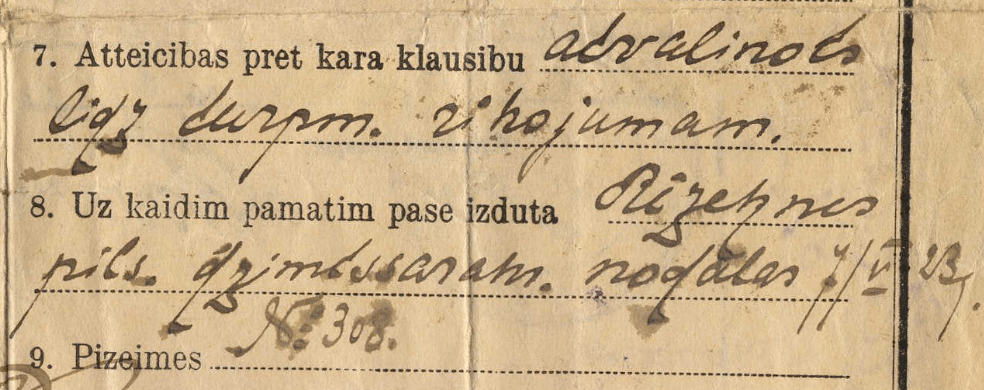 7. Atteicibas pret kara klausibu atvalinots
lidz turpm. rihojumam.
8. Uz kaidim pamatim pase izduta Rēzeknes
pils. dzimtssarakst. nodalas 7/V 23 g.
№ 308.
9. Pizeimes